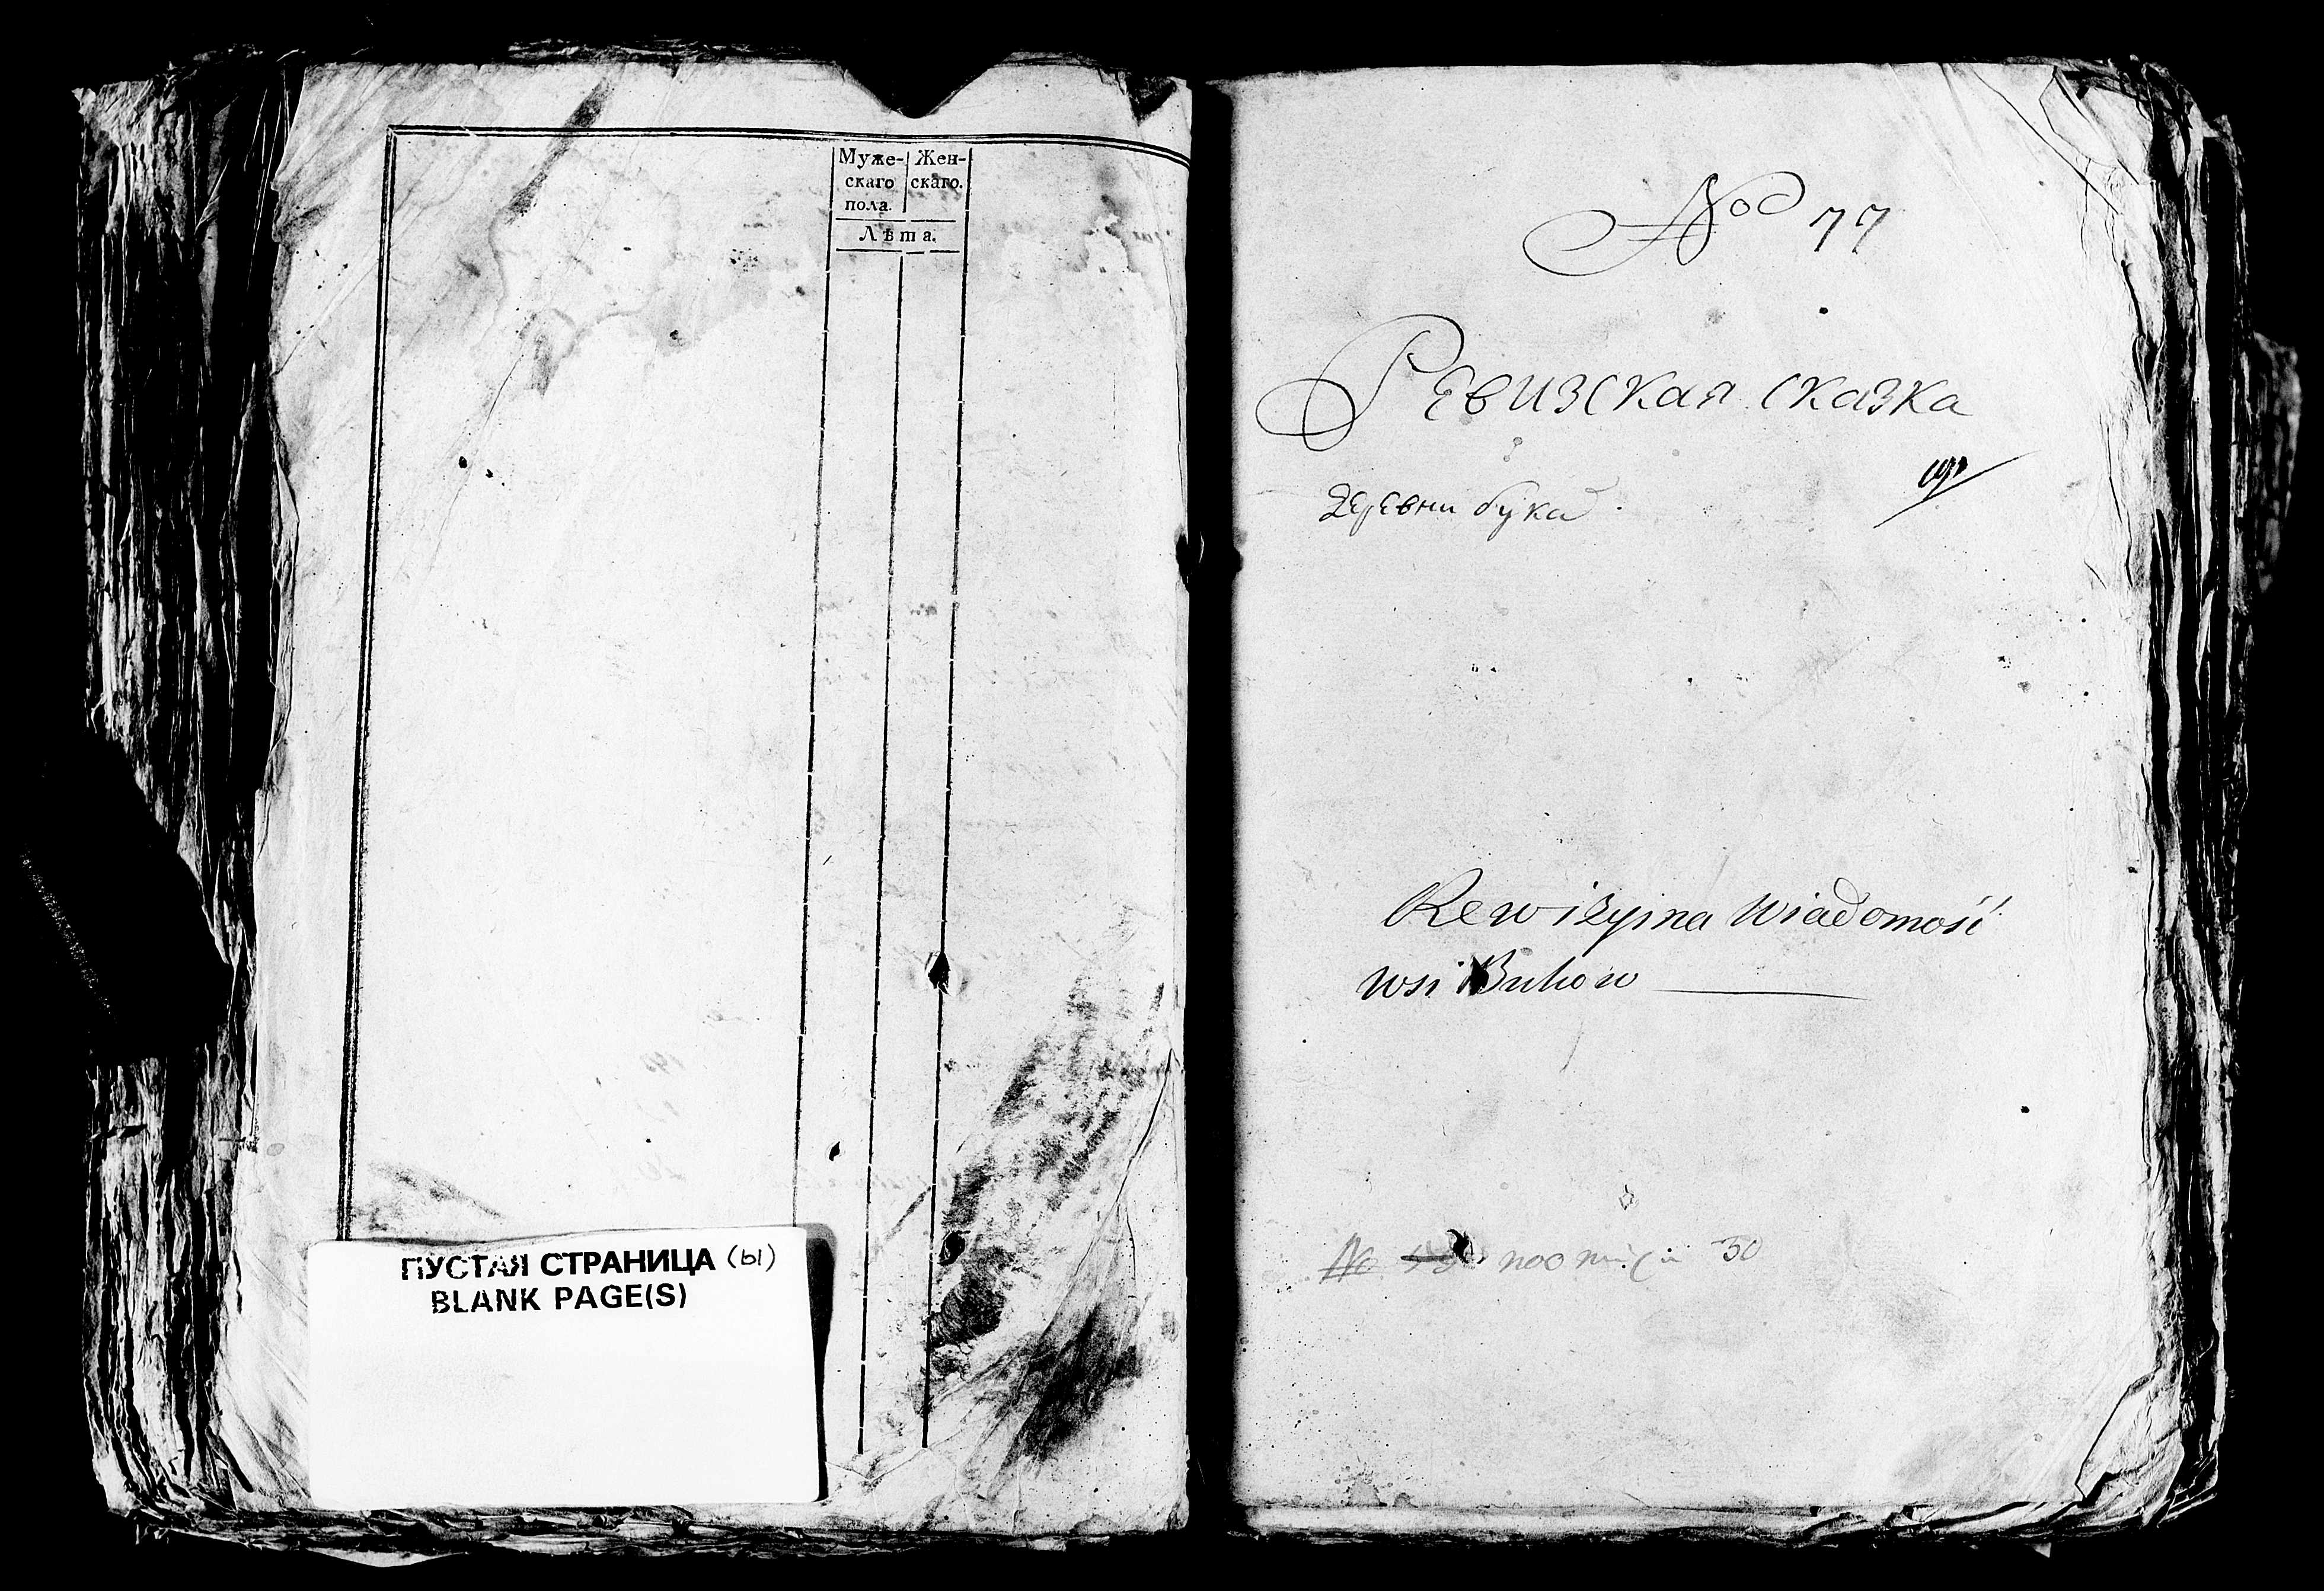 Муже- Жен-
скаго скаго.
пола.
Лѣта.
ПУСТАЯ СТРАНИЦА (ы)
BLANK PAGE(S)
No 77
Ревизская сказка
деревни бука
Rewizyina Wiadomość
wsi Bukow
No 30